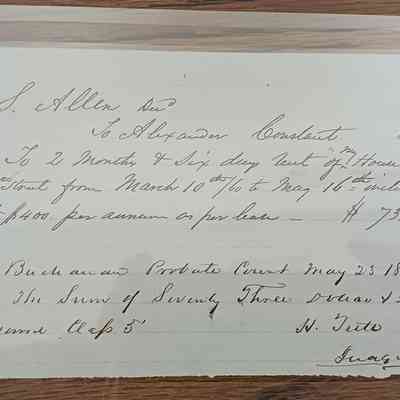 S. Allen Decd
To Alexander Constant
To 2 Months & Six day Rent of my House
Street from March 10th/60 to May 16th
$400 per annum as per lease — $ 73
Buchanan Probate Court May 23 18
The Sum of Seventy Three dollar &
Class 5 H. Tutt
Judge